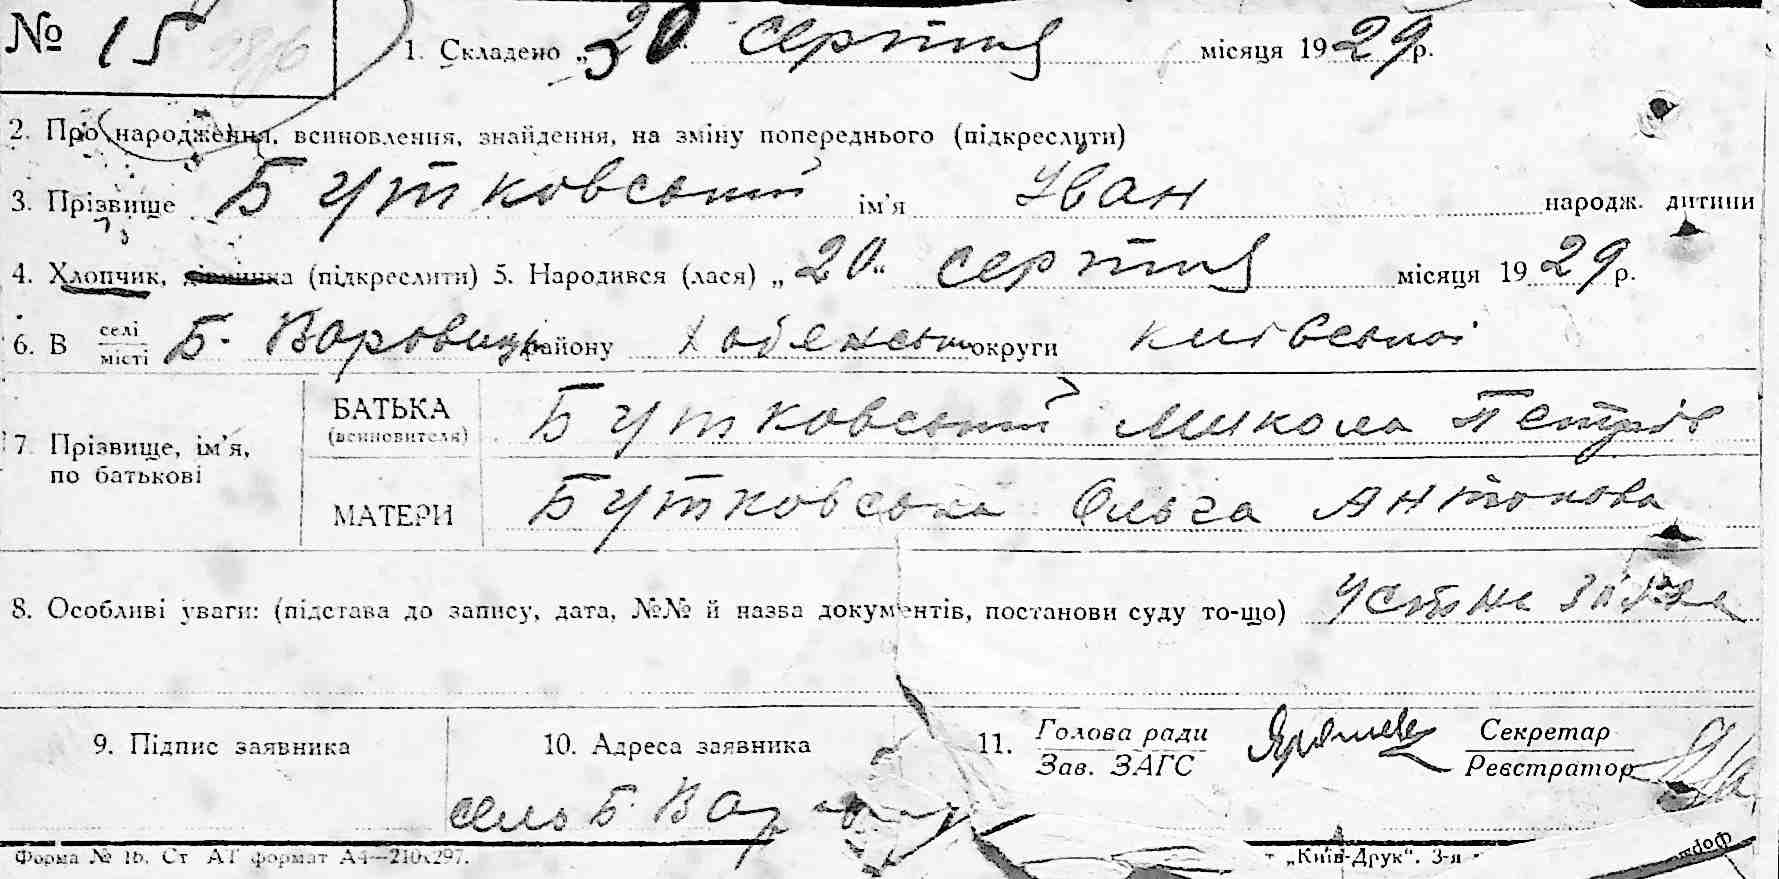 № 15 1. Складено „20 серпня місяця 1929 р.
2. Про народження, всиновлення, знайдення, на зміну попереднього (підкреслити)
3. Прізвище Бутковський ім'я Іван народж. дитини
4. Хлопчик, дівчинка (підкреслити) 5. Народився (лася) „20“ серпня місяця 1929 р.
6. В селі місті Б. Варовиць району Хабенськ округи київської
7. Прізвище, ім'я, по батькові
БАТЬКА (всиновителя) Бутковський Микола Петрів
МАТЕРИ Бутковська Ольга Антонова
8. Особливі уваги: (підстава до запису, дата, №№ й назва документів, постанови суду то-що) Устна заява
9. Підпис заявника 10. Адреса заявника 11. Голова ради Секретар
Зав. ЗАГС Реєстратор
село Б. Вар
Форма № 1б. Ст АТ формат А4—210х297. „Київ-Друк“. 3-я